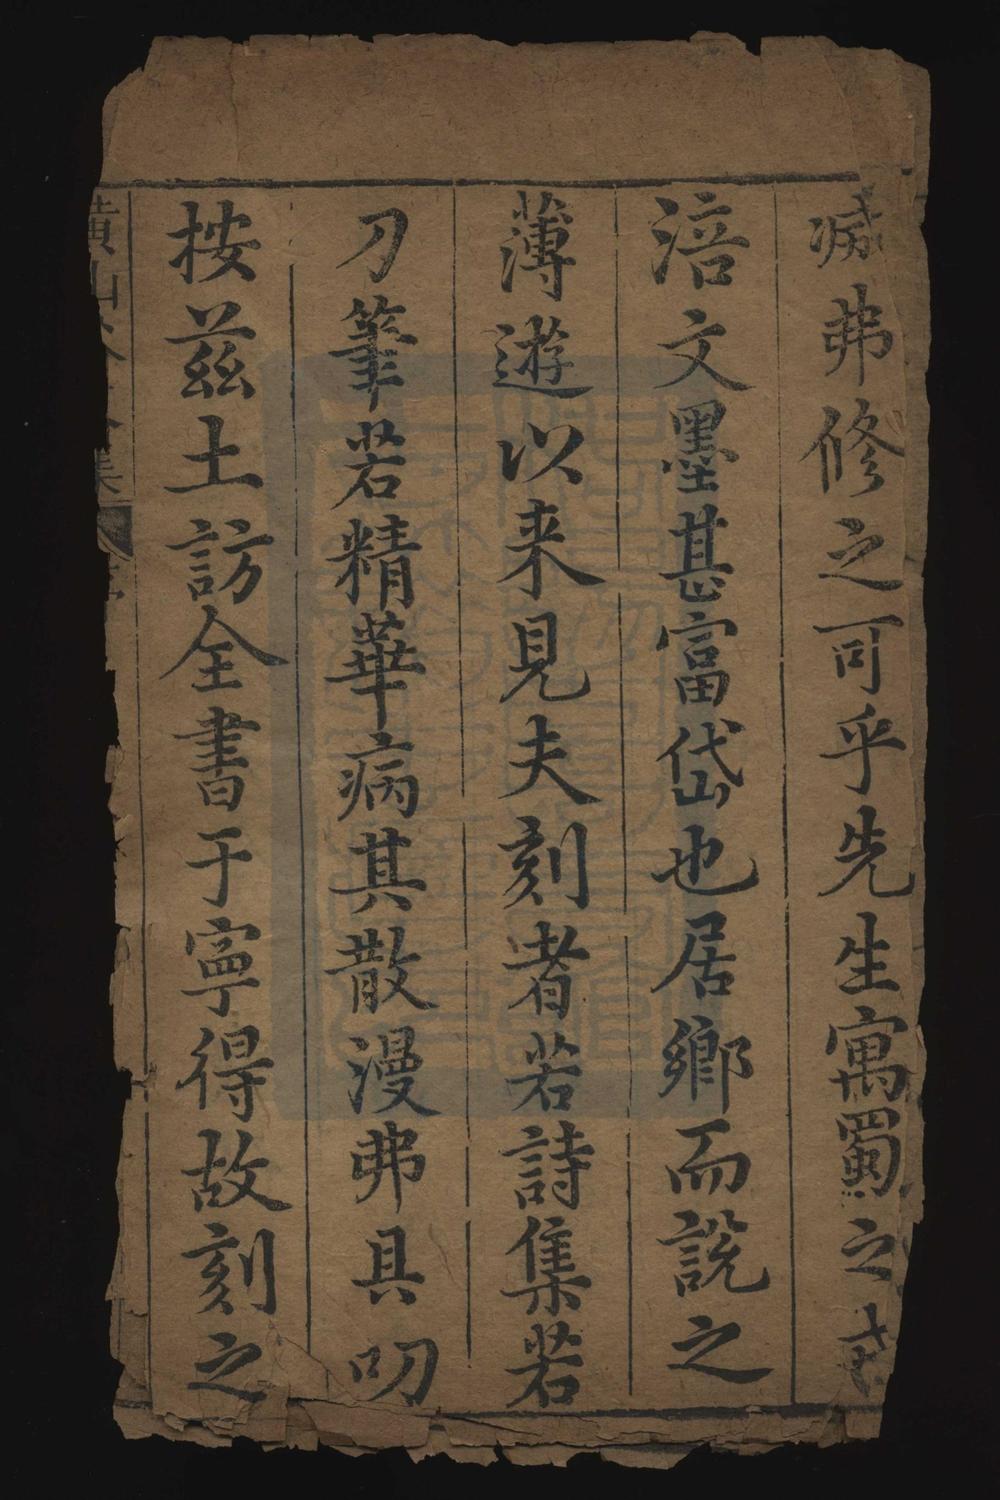 弗修之可乎先生寓蜀之
涪文墨甚富岱也居鄉而説之
薄遊以来見夫刻者若詩集若
刀筆若精華病其散漫弗具叨
按兹土訪全書于寧得故刻之